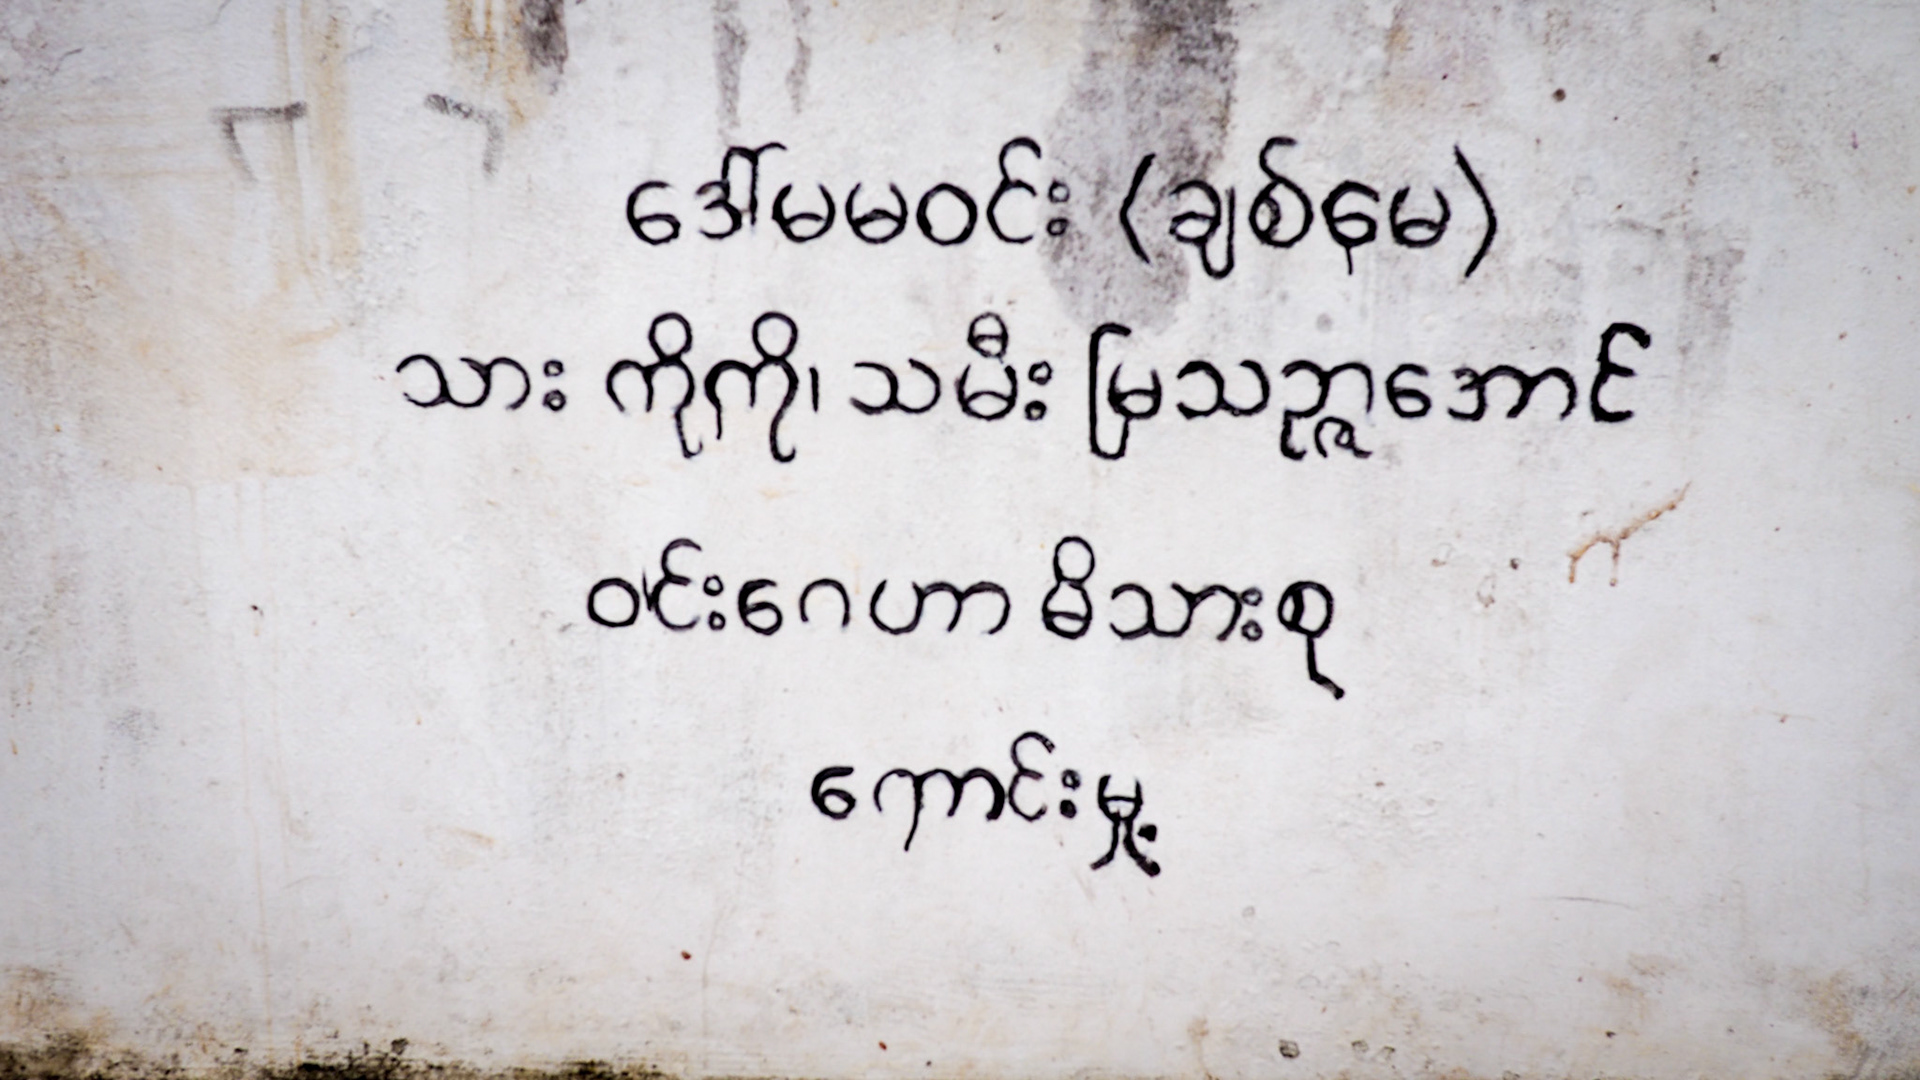 ဒေါ်မမဝင်း (ချစ်မေ)
သား ကိုကို၊ သမီး မြသဉ္ဇာအောင်
ဝင်းဂေဟာ မိသားစု
ကောင်းမှု့